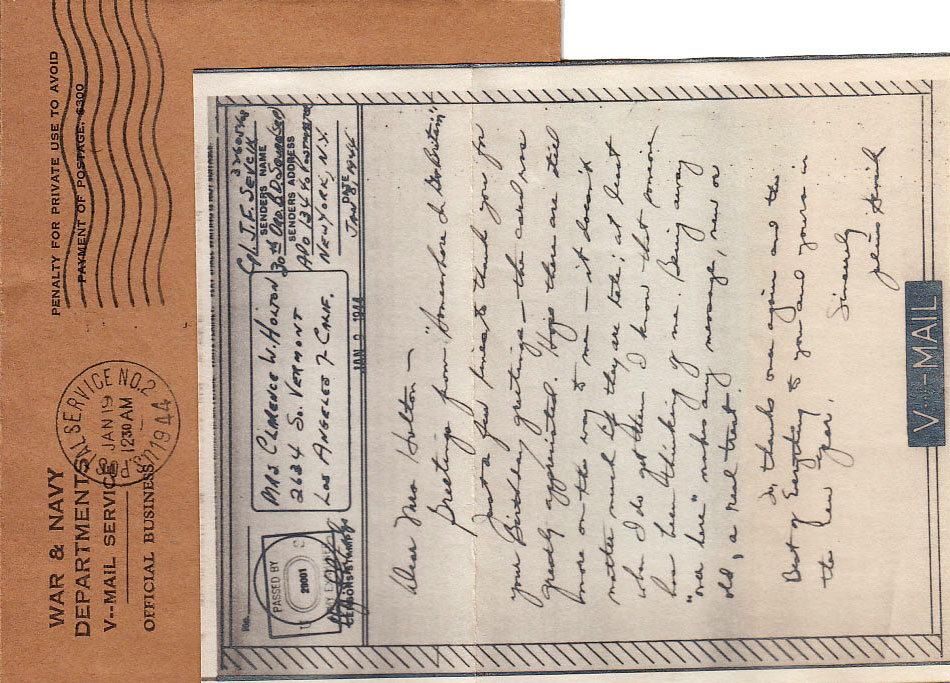 WAR & NAVY
DEPARTMENTS
V--MAIL SERVICE
OFFICIAL BUSINESS
PENALTY FOR PRIVATE USE TO AVOID
PAYMENT OF POSTAGE, $300
POSTAL SERVICE NO. 2
JAN 19
1230 AM
1944
No.
PASSED BY
29001
ARMY EXAMINER
CENSOR'S STAMP
Mrs. Clarence W. Holton
2634 So. Vermont
Los Angeles 7 Calif.
JAN 9 1944
Cpl. J. F. Sevcik
SENDERS NAME
SENDERS ADDRESS
APO 134 % Postmaster
New York, N.Y.
DATE
Jan 8, 1944
Dear Mrs Holton —
Greetings from "Somewhere in Gr Britain".
Just a few lines to thank you for
your Birthday greetings — the card was
greatly appreciated. Hope there are still
more on the way to me — it doesn't
matter much if they are late; at least
when I do get them I know that someone
has been thinking of me. Being away
"over here" makes any message, new or
old, a real treat.
So, thanks once again and the
Best of Everything to you and yours in
the new year,
Sincerely
V···—MAIL